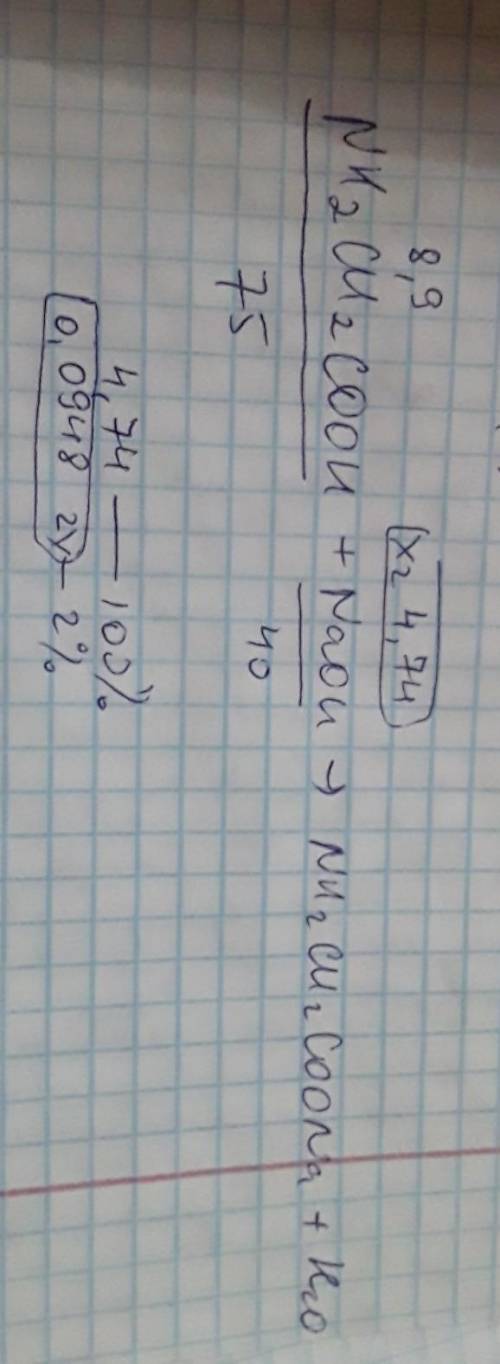 8,9 x = 4,74
NH2CH2COOH + NaOH → NH2CH2COONa + H2O
75 40
4,74 — 100%
0,0948 г — 2%